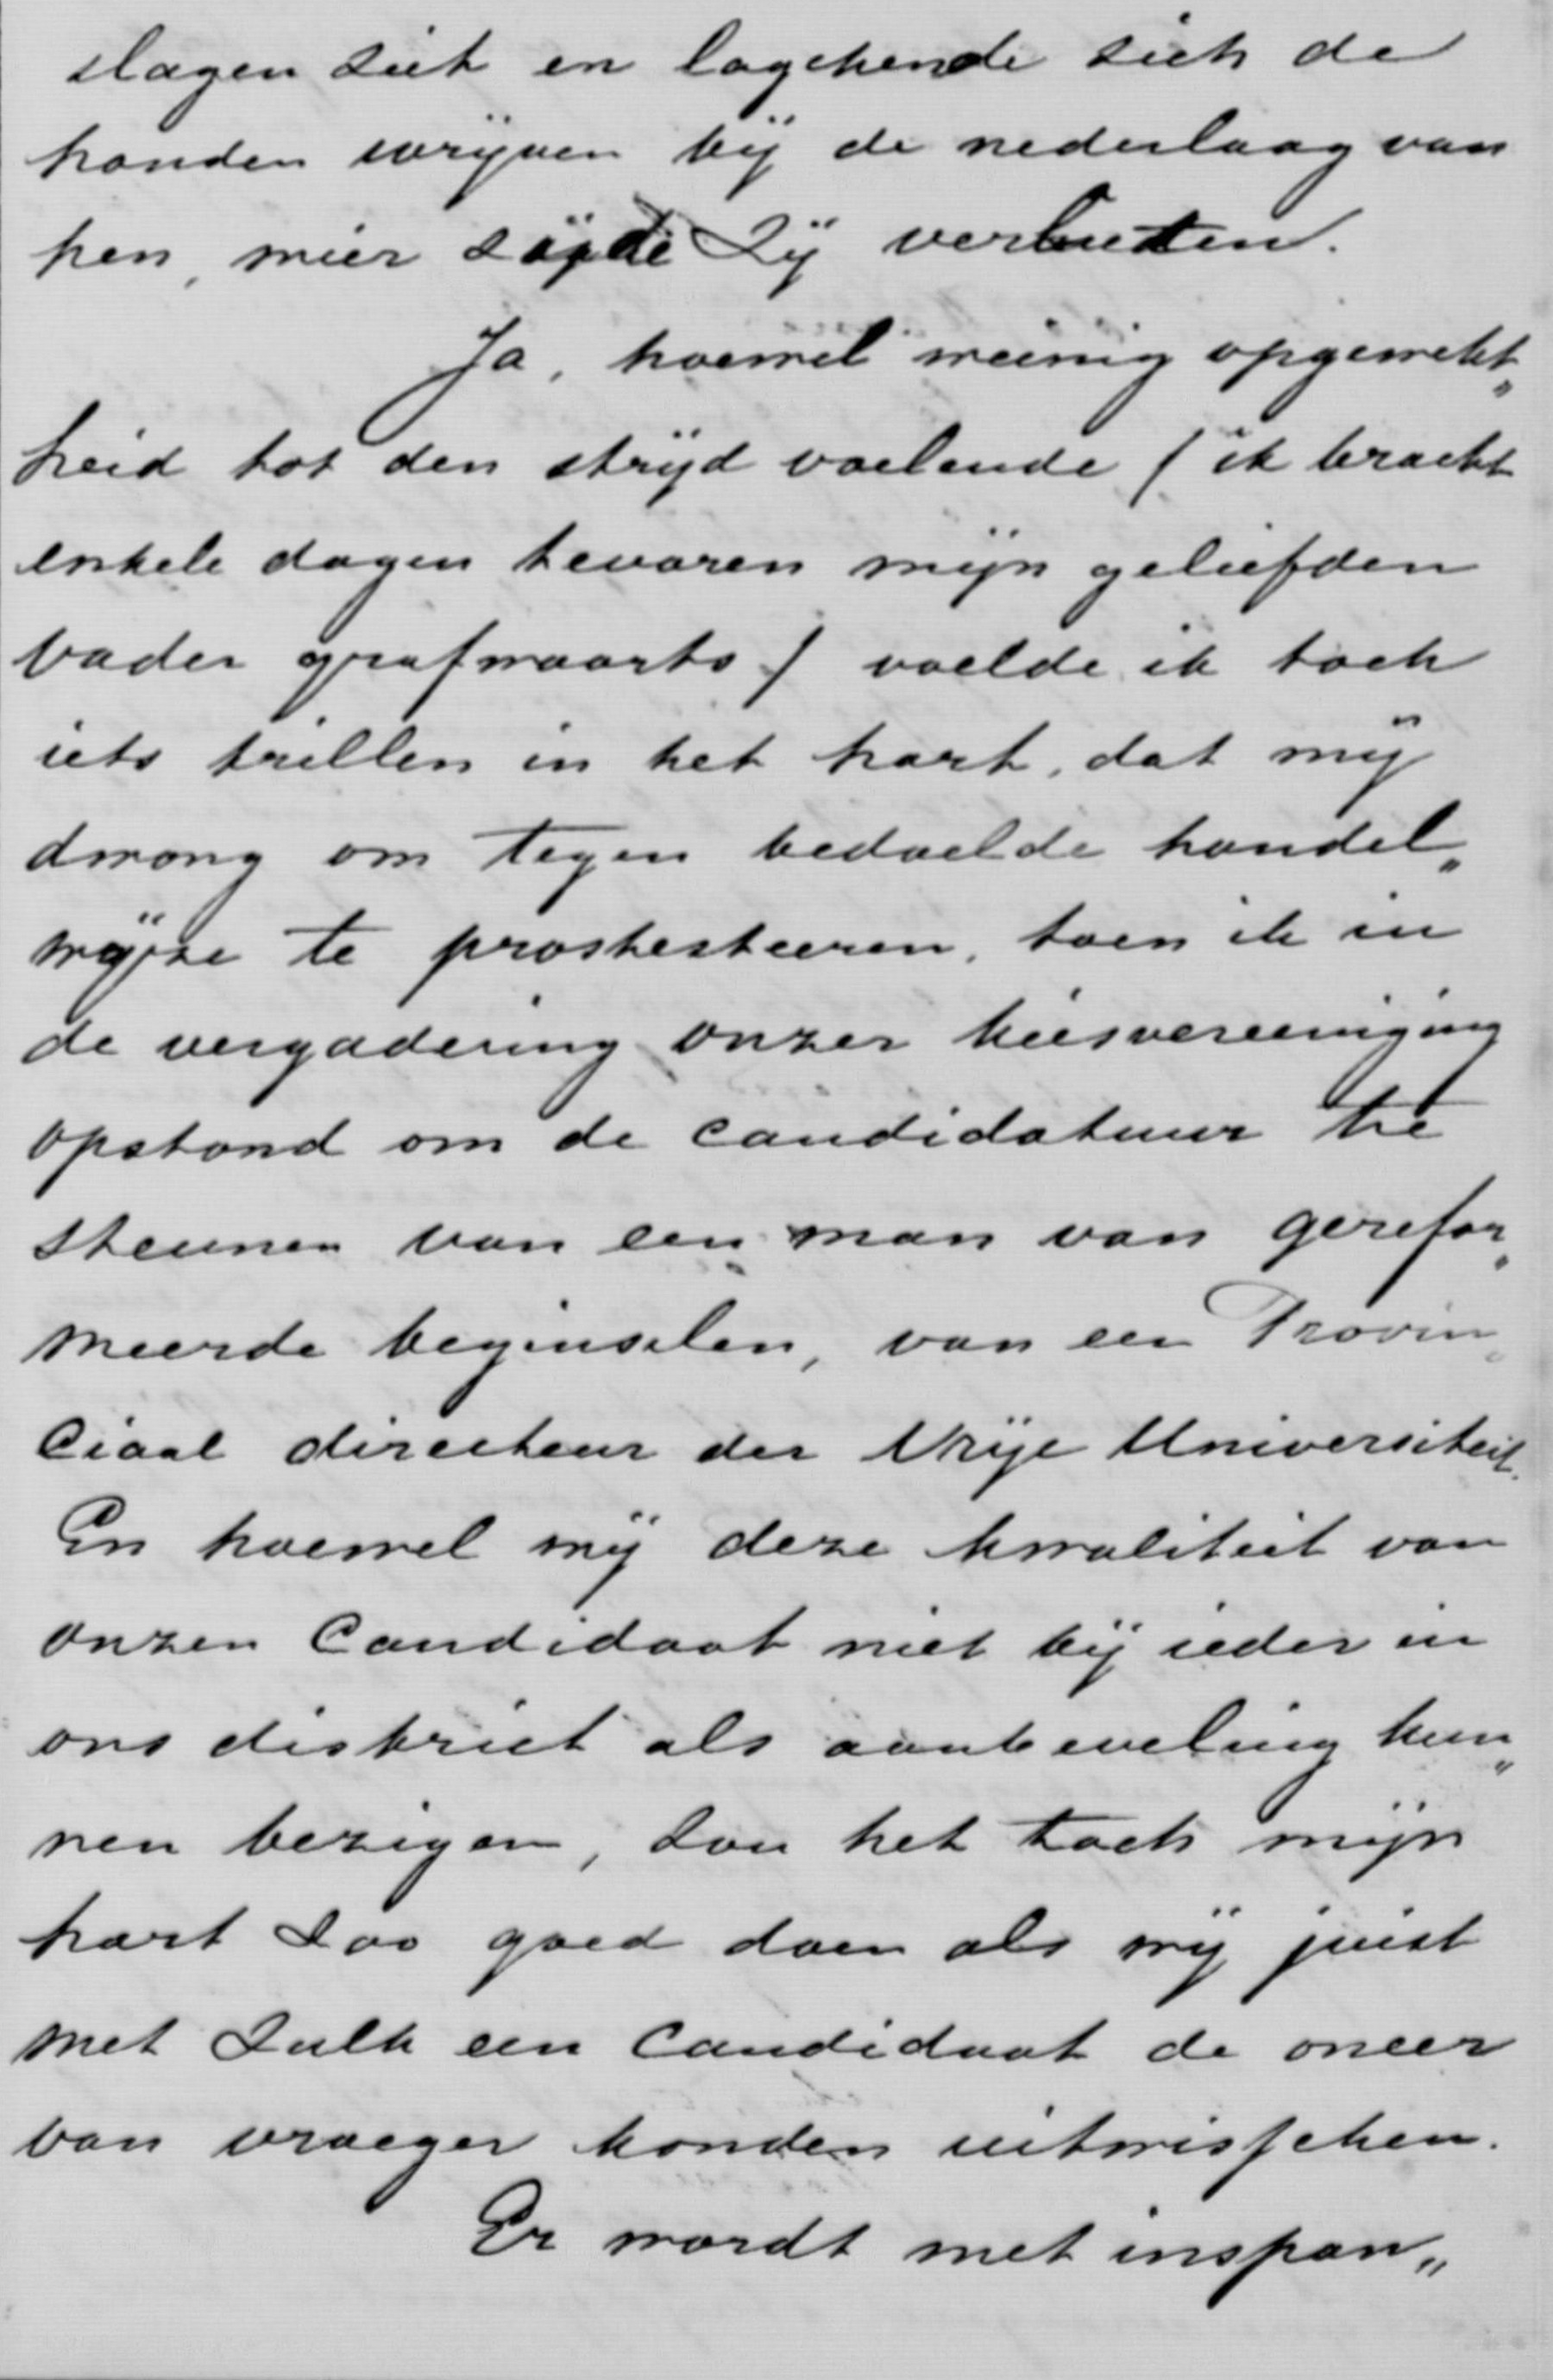 slagen ziet en lagchende zich de
handen wrijven bij de nederlaag van
hen, wier zijde zij verlieten.
Ja, hoewel weinig opgewekt„
heid tot den strijd voelende (ik bracht
enkele dagen tevoren mijn geliefden
vader grafwaarts) voelde ik toch
iets trillen in het hart, dat mij
dwong om tegen bedoelde handel„
wijze te prostesteeren, toen ik in
de vergadering onzer kiesvereeniging
opstond om de candidatuur te
steunen van een man van gerefor„
meerde beginselen, van een Provin„
ciaal directeur der Vrije Universiteit.
En hoewel wij deze kwaliteit van
onzen Candidaat niet bij ieder in
ons district als aanbeveling kun„
nen bezigen, zou het toch mijn
hart zoo goed doen als wij juist
met zulk een Candidaat de oneer
van vroeger konden uitwisschen.
Er wordt met inspan„